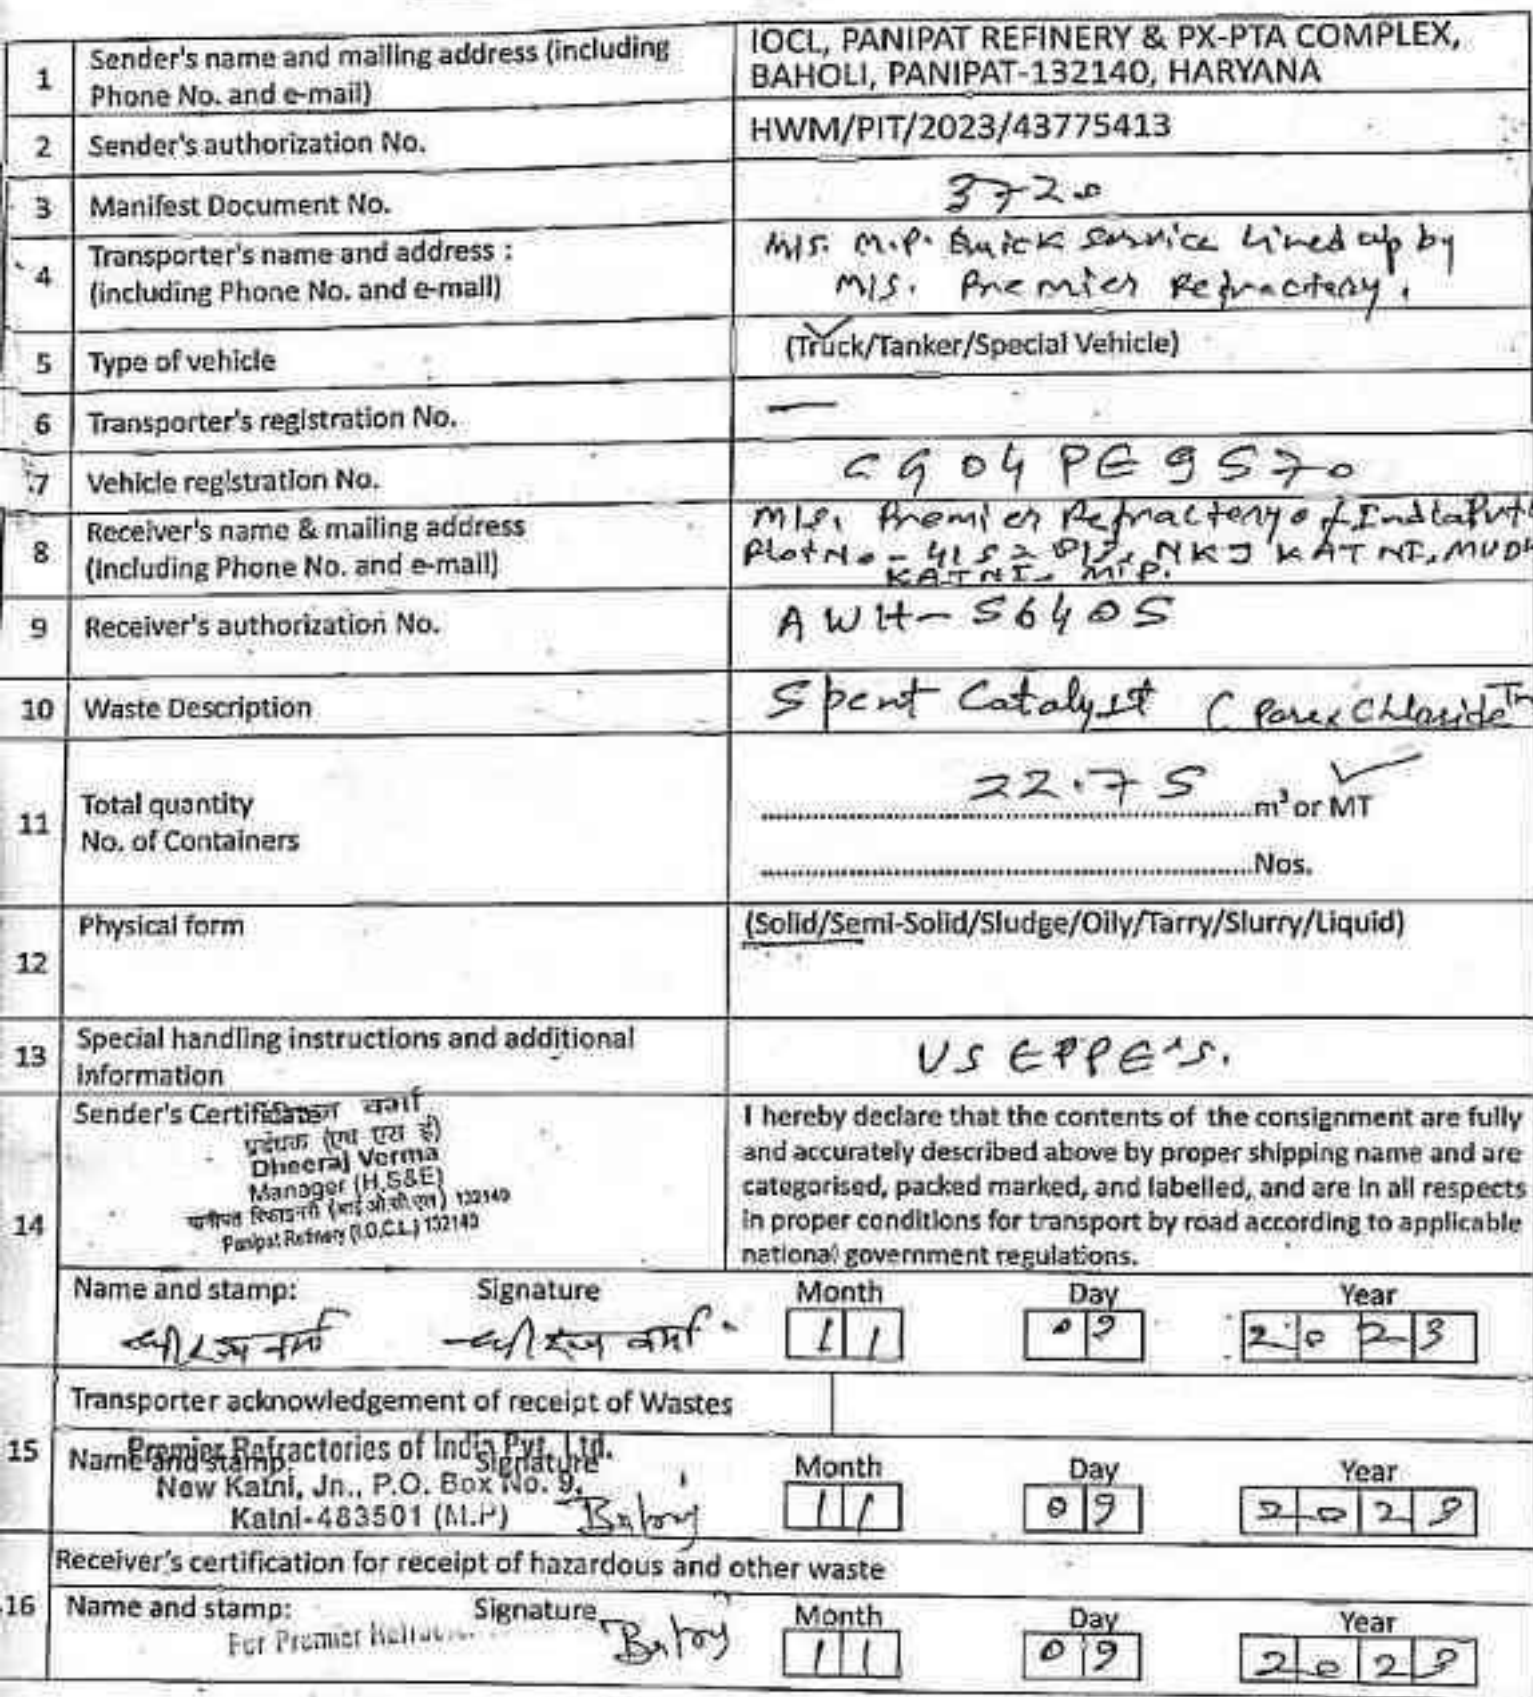 1 Sender's name and mailing address (including
Phone No. and e-mail)
IOCL, PANIPAT REFINERY & PX-PTA COMPLEX,
BAHOLI, PANIPAT-132140, HARYANA
2 Sender's authorization No. HWM/PIT/2023/43775413
3 Manifest Document No. 3720
4 Transporter's name and address :
(including Phone No. and e-mail)
M/S. M.P. Quick Service Lined up by
M/S. Premier Refractory.
5 Type of vehicle (Truck/Tanker/Special Vehicle)
6 Transporter's registration No. —
7 Vehicle registration No. CG 04 PE 9570
8 Receiver's name & mailing address
(including Phone No. and e-mail)
M/S. Premier Refractory of India Pvt
Plot No - NKJ KATNI,
KATNI. M.P.
9 Receiver's authorization No. AWH-56405
10 Waste Description Spent Catalyst (Parex Chloride
11 Total quantity 22.75 m³ or MT
No. of Containers Nos.
12 Physical form (Solid/Semi-Solid/Sludge/Oily/Tarry/Slurry/Liquid)
13 Special handling instructions and additional
information
USE PPE's.
14 Sender's Certificate
वर्मा
प्रबंधक (एच एस ई)
Dheeraj Verma
Manager (H,S&E)
पानीपत रिफाइनरी (आई.ओ.सी.एल) 132140
Panipat Refinery (I.O.C.L.) 132140
I hereby declare that the contents of the consignment are fully
and accurately described above by proper shipping name and are
categorised, packed marked, and labelled, and are in all respects
in proper conditions for transport by road according to applicable
national government regulations.
Name and stamp: Signature Month Day Year
धीरज वर्मा धीरज वर्मा 11 09 2023
15 Transporter acknowledgement of receipt of Wastes
Premier Refractories of India Pvt. Ltd.
Name and stamp: Signature Month Day Year
New Katni, Jn., P.O. Box No. 9,
Katni-483501 (M.P) 11 09 2023
16 Receiver's certification for receipt of hazardous and other waste
Name and stamp: Signature Month Day Year
For Premier 11 09 2023